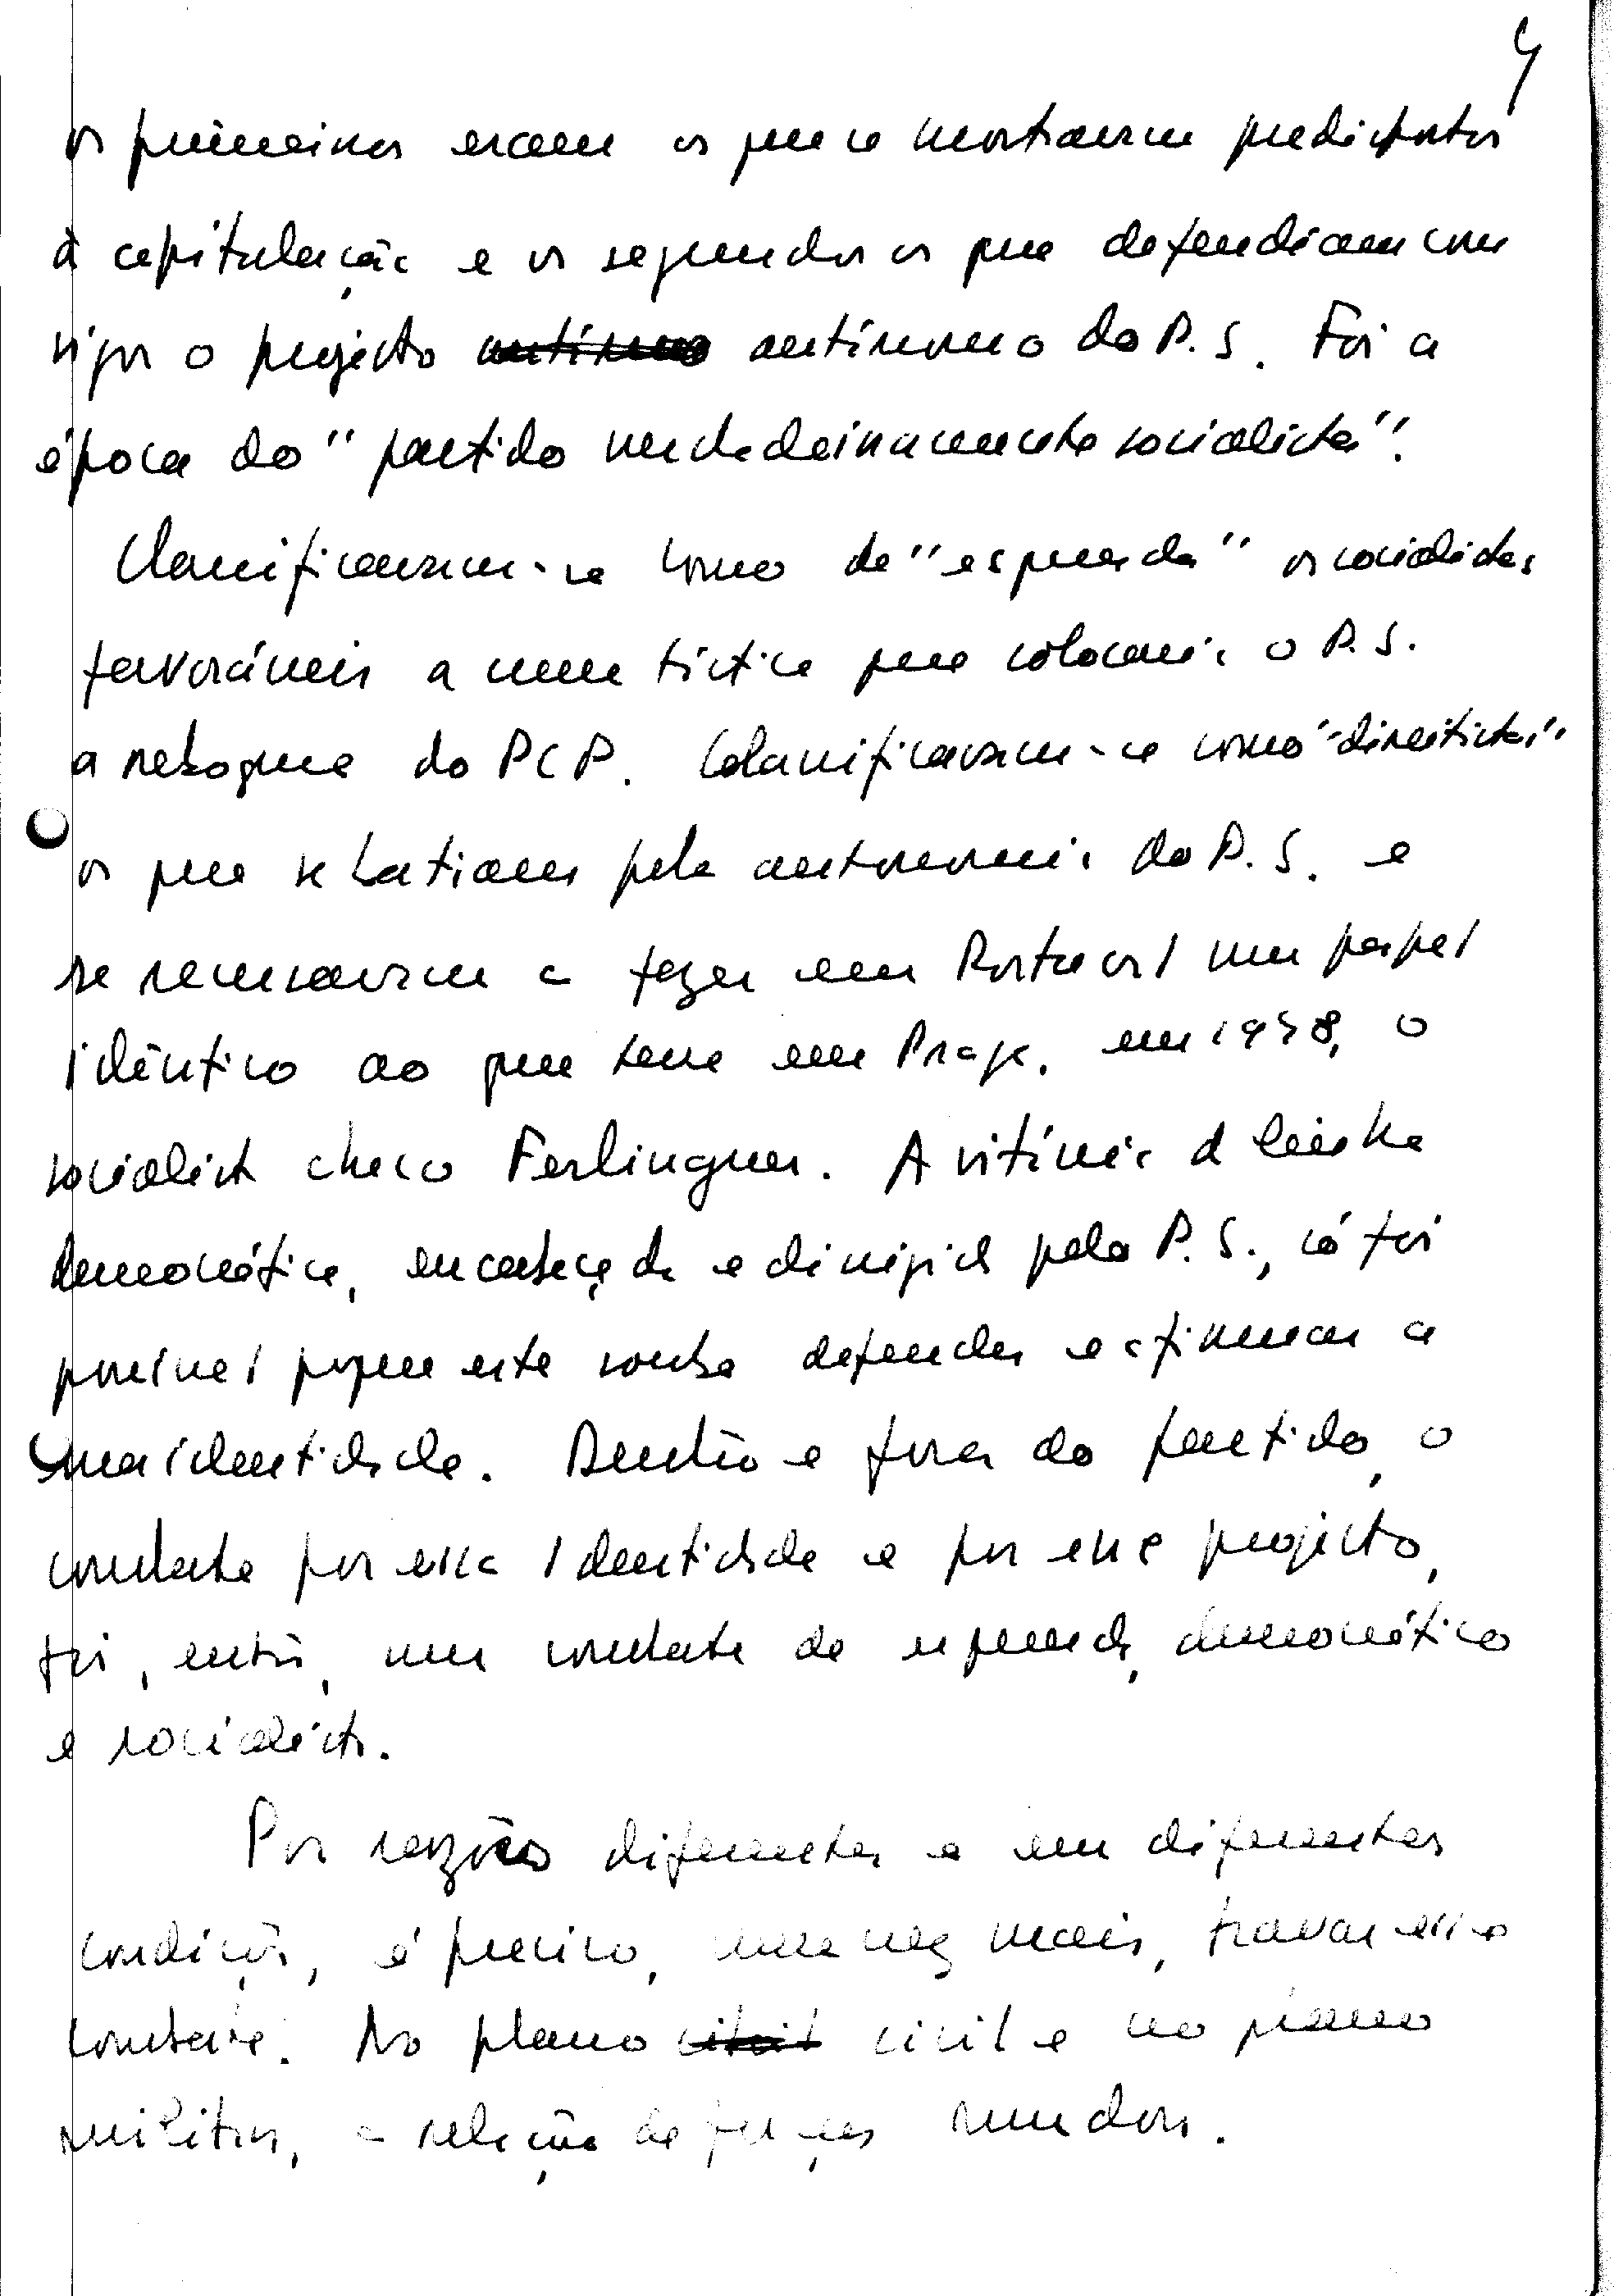 4
os primeiros eram os que se mostravam predispostos
à capitulação e os segundos os que defendiam com
vigor o projecto autónomo autónomo do P.S. Foi a
época do "partido verdadeiramente socialista".
Classificavam-se como de "esquerda" os socialistas
favoráveis a uma táctica que colocaria o P.S.
a reboque do PCP. Classificavam-se como "direitistas"
os que se batiam pela autonomia do P.S. e
se recusavam a fazer em Portugal um papel
idêntico ao que teve em Praga, em 1948, o
socialista checo Ferlinguer. A vitória da linha
democrática, encabeçada e dirigida pelo P.S., só foi
possível porque este soube defender e afirmar a
sua identidade. Dentro e fora do partido, o
combate por essa identidade e por esse projecto,
foi, então, um combate de esquerda, democrático
e socialista.
Por razões diferentes e em diferentes
condições, é preciso, uma vez mais, travar esse
combate. No plano civil e no plano
militar, a relação de forças mudou.